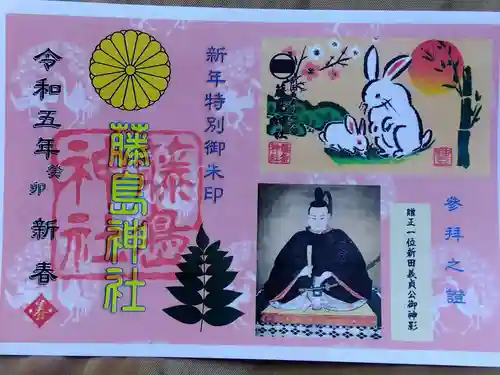 參拜之證
贈正一位新田義貞公御神影
新年特別御朱印
藤島神社
藤島神社
令和五年癸卯 新春
春